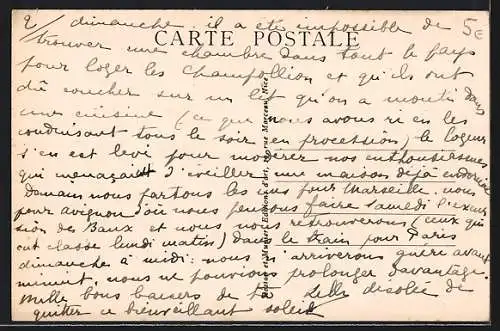 2/ dimanche. il a été impossible de
5€
CARTE POSTALE
trouver une chambre dans tout le pays
pour loger les Champollion et qu'ils ont
dû coucher sur un lit qu'on a monté dans
une cuisine (ce que nous avons ri en les
conduisant tous le soir en procession) le logeur
s'en est levé pour modérer nos enthousiasmes
qui menaçait d'éveiller une maison déjà endormie
Demain nous partons les uns pour Marseille, nous
pour avignon d'où nous pensons faire samedi l'excur
sion des Baux et nous nous retrouverons (ceux qui
ont classe lundi matin) dans le train pour Paris
dimanche à midi: nous n'arriverons guère avant
minuit, nous ne pouvions prolonger davantage.
Mille bons baisers de Lili désolée de
quitter ce bienveillant soleil
Munier, Editions d'art, rue Marceau, Nice